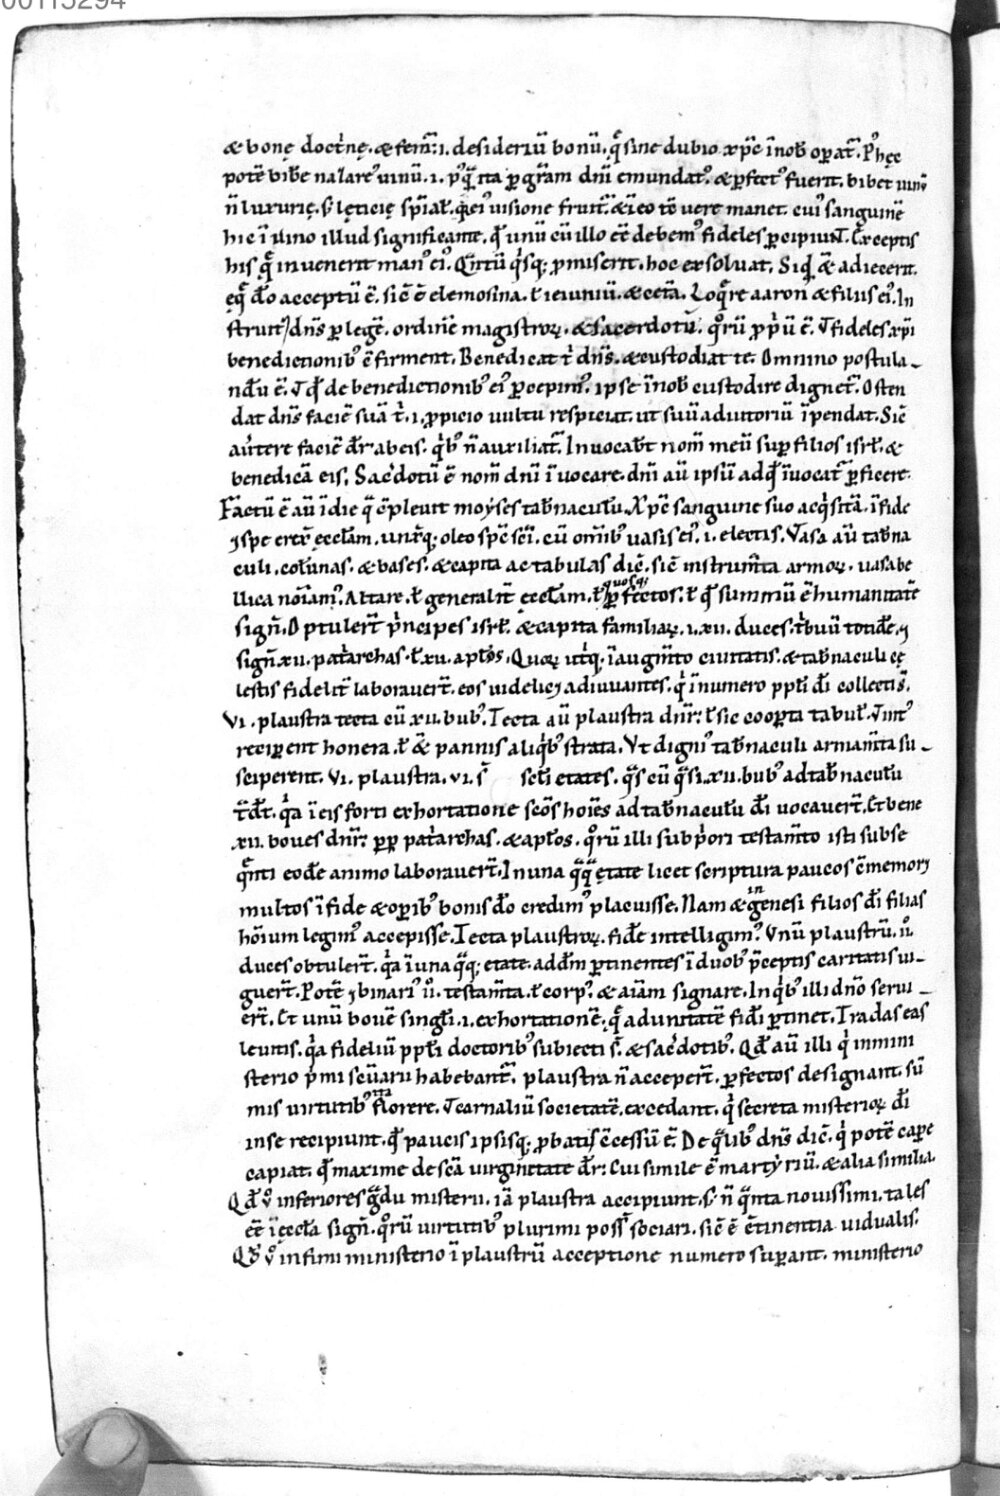 00115294
& bonę doct'nę. & fem̄. i. desideriū bonū. q̄ sine dubio xp̄c ī nob̄ op̄at̄. P' hęc
potē bib̄e nazareꝰ uinū. i. pꝰq̄ ita ꝑ gr̄am dn̄i emundatꝰ & ꝑfectꝰ fuerit. bibet uinū
n̄ luxurię. s; lęticię sp̄ial̄. q̄ eiꝰ uisione fruit̄ & ī eo tō uere manet. cuiꝰ sanguinē
hic ī uino illud significante. q̄ unū cū illo eē debemꝰ fideles ꝑcipiunt. Exceptis
his q̄ inuenerit manꝰ eiꝰ. Q̄ntū q'sq; ꝓmiserit. hoc exsoluat. Siq̄ & adiecerit.
eq̄ dō acceptū ē. sic̄ ē elemosina. ł ieiuniū. & cetā. Loq̄re aaron & filiis eiꝰ. In
struit dn̄s ꝑ legē. ordinē magistroꝝ. & sacerdotū. qͦrū ꝓp'ū ē. ut fideles xp̄i
benedictionibꝰ ↄfirment. Benedicat t' dn̄s. & custodiat te. Omnino postula-
ndū ē. ut q̄ de benedictionibꝰ eiꝰ ꝑcepimꝰ. ipse ī nob̄ custodire dignet̄. Osten
dat dn̄s faciē suā t'. i. ꝓpicio uultu respiciat. ut suū adiutoriū īpendat. Sic̄
au'tere faciē dr̄ ab eis. q'bꝰ n̄ auxiliat̄. Inuocab̄t nom̄ meū sup̄ filios isrł. &
benedicā eis. Sac'dotū ē nom̄ dn̄i īuocare. dn̄i aū ipsū ad q̄ īuocat̄ ꝑficere.
Factū ē aū ī die q̄ ↄpleuit moẏses tab̄naculū. Xp̄c sanguine suo acq'sitā. ī fide
ɿ spe erex̄ ęccłam. unx̄q; oleo sp̄c sc̄i. cū om̄ibꝰ uasis eiꝰ. i. electis. Vasa aū tab̄na
culi. colūnas. & bases. & capita ac tabulas dic̄. sic̄ instrum̄ta armoꝝ. uasa be
llica noīamꝰ. Altare. ł generalit̄ ęccłam. ł quosq; ꝑfectos. ł q̄ summū ē humanitatē
sign̄. Optulert̄ p'ncipes isrł. & capita familiaꝝ. i. xii. duces. t'buū totidē. ɿ
sign̄. xii. pat'archas. ł xii. apłos. Quoꝝ ut'q; ī augm̄to ciuitatis. & tab̄naculi cę
lestis fidelit̄ laborauert̄. eos uidelic; adiuuantes. q' ī numero ppłi dī collectis̄.
VI. plaustra tecta cū xii. bubꝰ. Tecta aū plaustra dn̄r. ł sic coopta tabuł. ut intꝰ
reciperent honera. ł & pannis aliq'bꝰ strata. Vt dignꝰ tab̄naculi armam̄ta su-
sciperent. VI. plaustra. vi. s̄ sc̄li etates. q̄s cū q̄si. xii. bubꝰ ad tab̄naculū
t̄dr̄t. q'a ī eis forti exhortatione sc̄os hoīes ad tab̄naculū dī uocauert̄. Et bene
xii. boues dn̄r. ꝓp pat'archas. & apłos. qͦrū illi sub p'ori testam̄to isti subse
q̄nti eodē animo laborauert̄. In una q̄q̄ ętate licet scriptura paucos ↄmemor&
multos ī fide & op̄ibꝰ bonis dō credimꝰ placuisse. Nam & in genesi filios dī filias
hoīum legimꝰ accepisse. Tecta plaustroꝝ. fidē intelligimꝰ. Vnū plaustrū. iiͦ.
duces obtulert̄. q'a ī una q̄q; etate. ad dm̄ ꝑtinentes ī duobꝰ p̄ceptis caritatis ui-
guert̄. Potē ɿ binariꝰ iiͦ. testam̄ta. ł corpꝰ & aīam signare. In q'bꝰ illi dn̄o serui-
ert̄. Et unū bouē singłi. i. exhortationē. q̄ ad unitatē fidī ꝑtinet. Tradas eas
leuitis. q'a fideliū ppłi doctoribꝰ subiecti s̄. & sac'dotibꝰ. Qd̄ aū illi q' in mini
sterio p'mi scūarii habebant̄. plaustra n̄ accepert̄. ꝑfectos designant. sū
mis uirtutibꝰ ita florere. ut carnaliū societatē. excedant. q' secreta misterioꝝ dī
in se recipiunt. q̄ paucis ipsisq; ꝓbatis ↄcessū ē. De q̄libꝰ dn̄s dic̄. q' potē capē
capiat. q̄ maxime de sc̄a uirginetate dr̄. Cui simile ē martẏriū. & alia similia.
Qd̄ vͦ inferiores g̃du misterii. iā plaustra accipiunt. s; n̄ q̄nta nouissimi. tales
eē ī ęccła sign̄. qͦrū uirtutibꝰ plurimi poss̄ sociari. sic̄ ē ↄtinentia uidualis.
Qd̄ vͦ infimi ministerio ī plaustrū acceptione numero suꝑant. ministerio